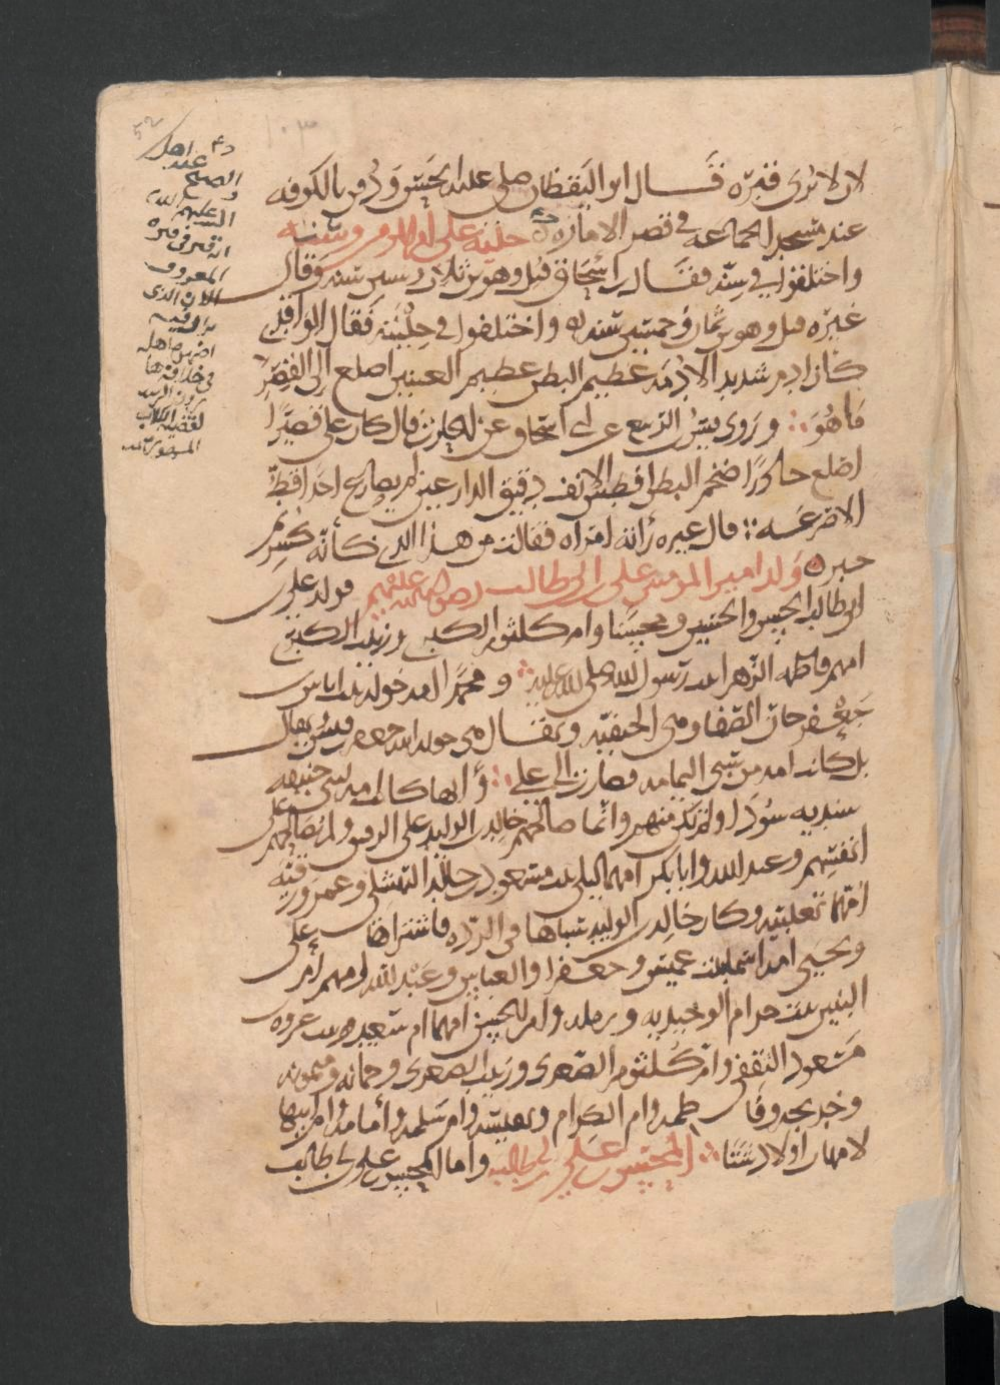 لان لا يرى قبره قال ابو اليقظان صلى عليه الحسن ودفن بالكوفه
عند مسجد الجماعه في قصر الاماره حليه على امير المومنين وسنه
واختلفوا في سنه فقال ابن اسحاق قتل وهو بن ثلاث وستين سنه وقال
غيره قتل وهو بن ثمان وخمسين سنه واختلفوا في حليته فقال الواقدي
كان ادم شديد الادمه عظيم البطن عظيم العينين اصلع الى القصر
ما هو وروى قيس بن الربيع عن ابي اسحاق عن الحارث قال كان علي قصيرا
اصلع حادرا ضخم البطن افطس الانف دقيق الذراعين لم يصارع احدا قط
الا صرعه قال غيره رأته امرأه فقالت من هذا الذي كأنه كسر ثم
جبر ولد امير المومنين علي بن ابي طالب رضي الله عنهم فولد علي بن
ابي طالب الحسن والحسين ومحسنا وام كلثوم الكبرى وزينب الكبرى
امهم فاطمه الزهرا بنت رسول الله صلى الله عليه ومحمدا امه خوله بنت اياس بن
جعفر جان الصفا وهي الحنفيه ويقال هي خوله ابنه جعفر بن قيس ويقال
بل كانت امه من سبي اليمامه فصارت الى علي وانها كانت امه لبني حنيفه
سنديه سودا ولم تكن منهم وانما صالحهم خالد بن الوليد على الرقيق ولم يصالحهم على
انفسهم وعبد الله وابا بكر امهما ليلى بنت مسعود بن خالد النهشلي وعمر ورقيه
امهما تغلبيه وكان خالد بن الوليد سباها في الرده فاشتراها علي
ويحيى امه اسما بنت عميس وجعفرا والعباس وعبد الله امهم ام
البنين بنت حرام الوحيديه ورمله وام الحسن امهما ام سعيد بنت عروه بن
مسعود الثقفي وام كلثوم الصغرى وزينب الصغرى وجمانه وميمونه
وخديجه وفاطمه وام الكرام ونفيسه وام سلمه وأمامه وام ابيها
لامهات اولاد شتى المحسن بن علي بن ابي طالب واما المحسن بن علي بن ابي طالب
52
١٠٣
عند اهل
انه قبر في قبره
المعروف
الان الذي